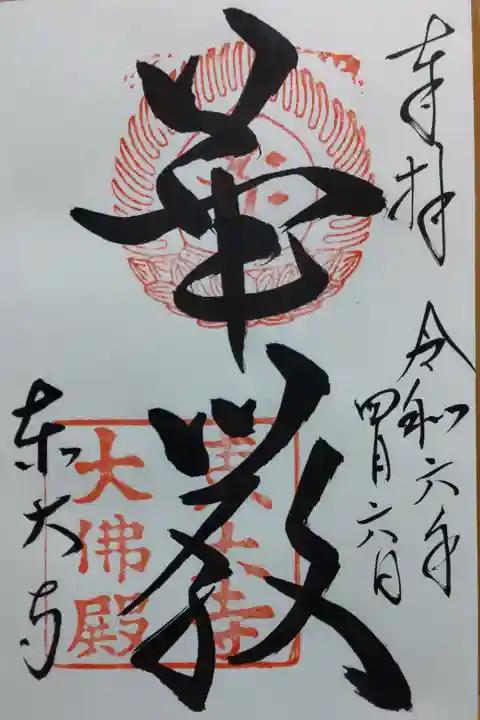 奉拝
令和六年
四月六日
華厳
東大寺
東大寺
大佛殿